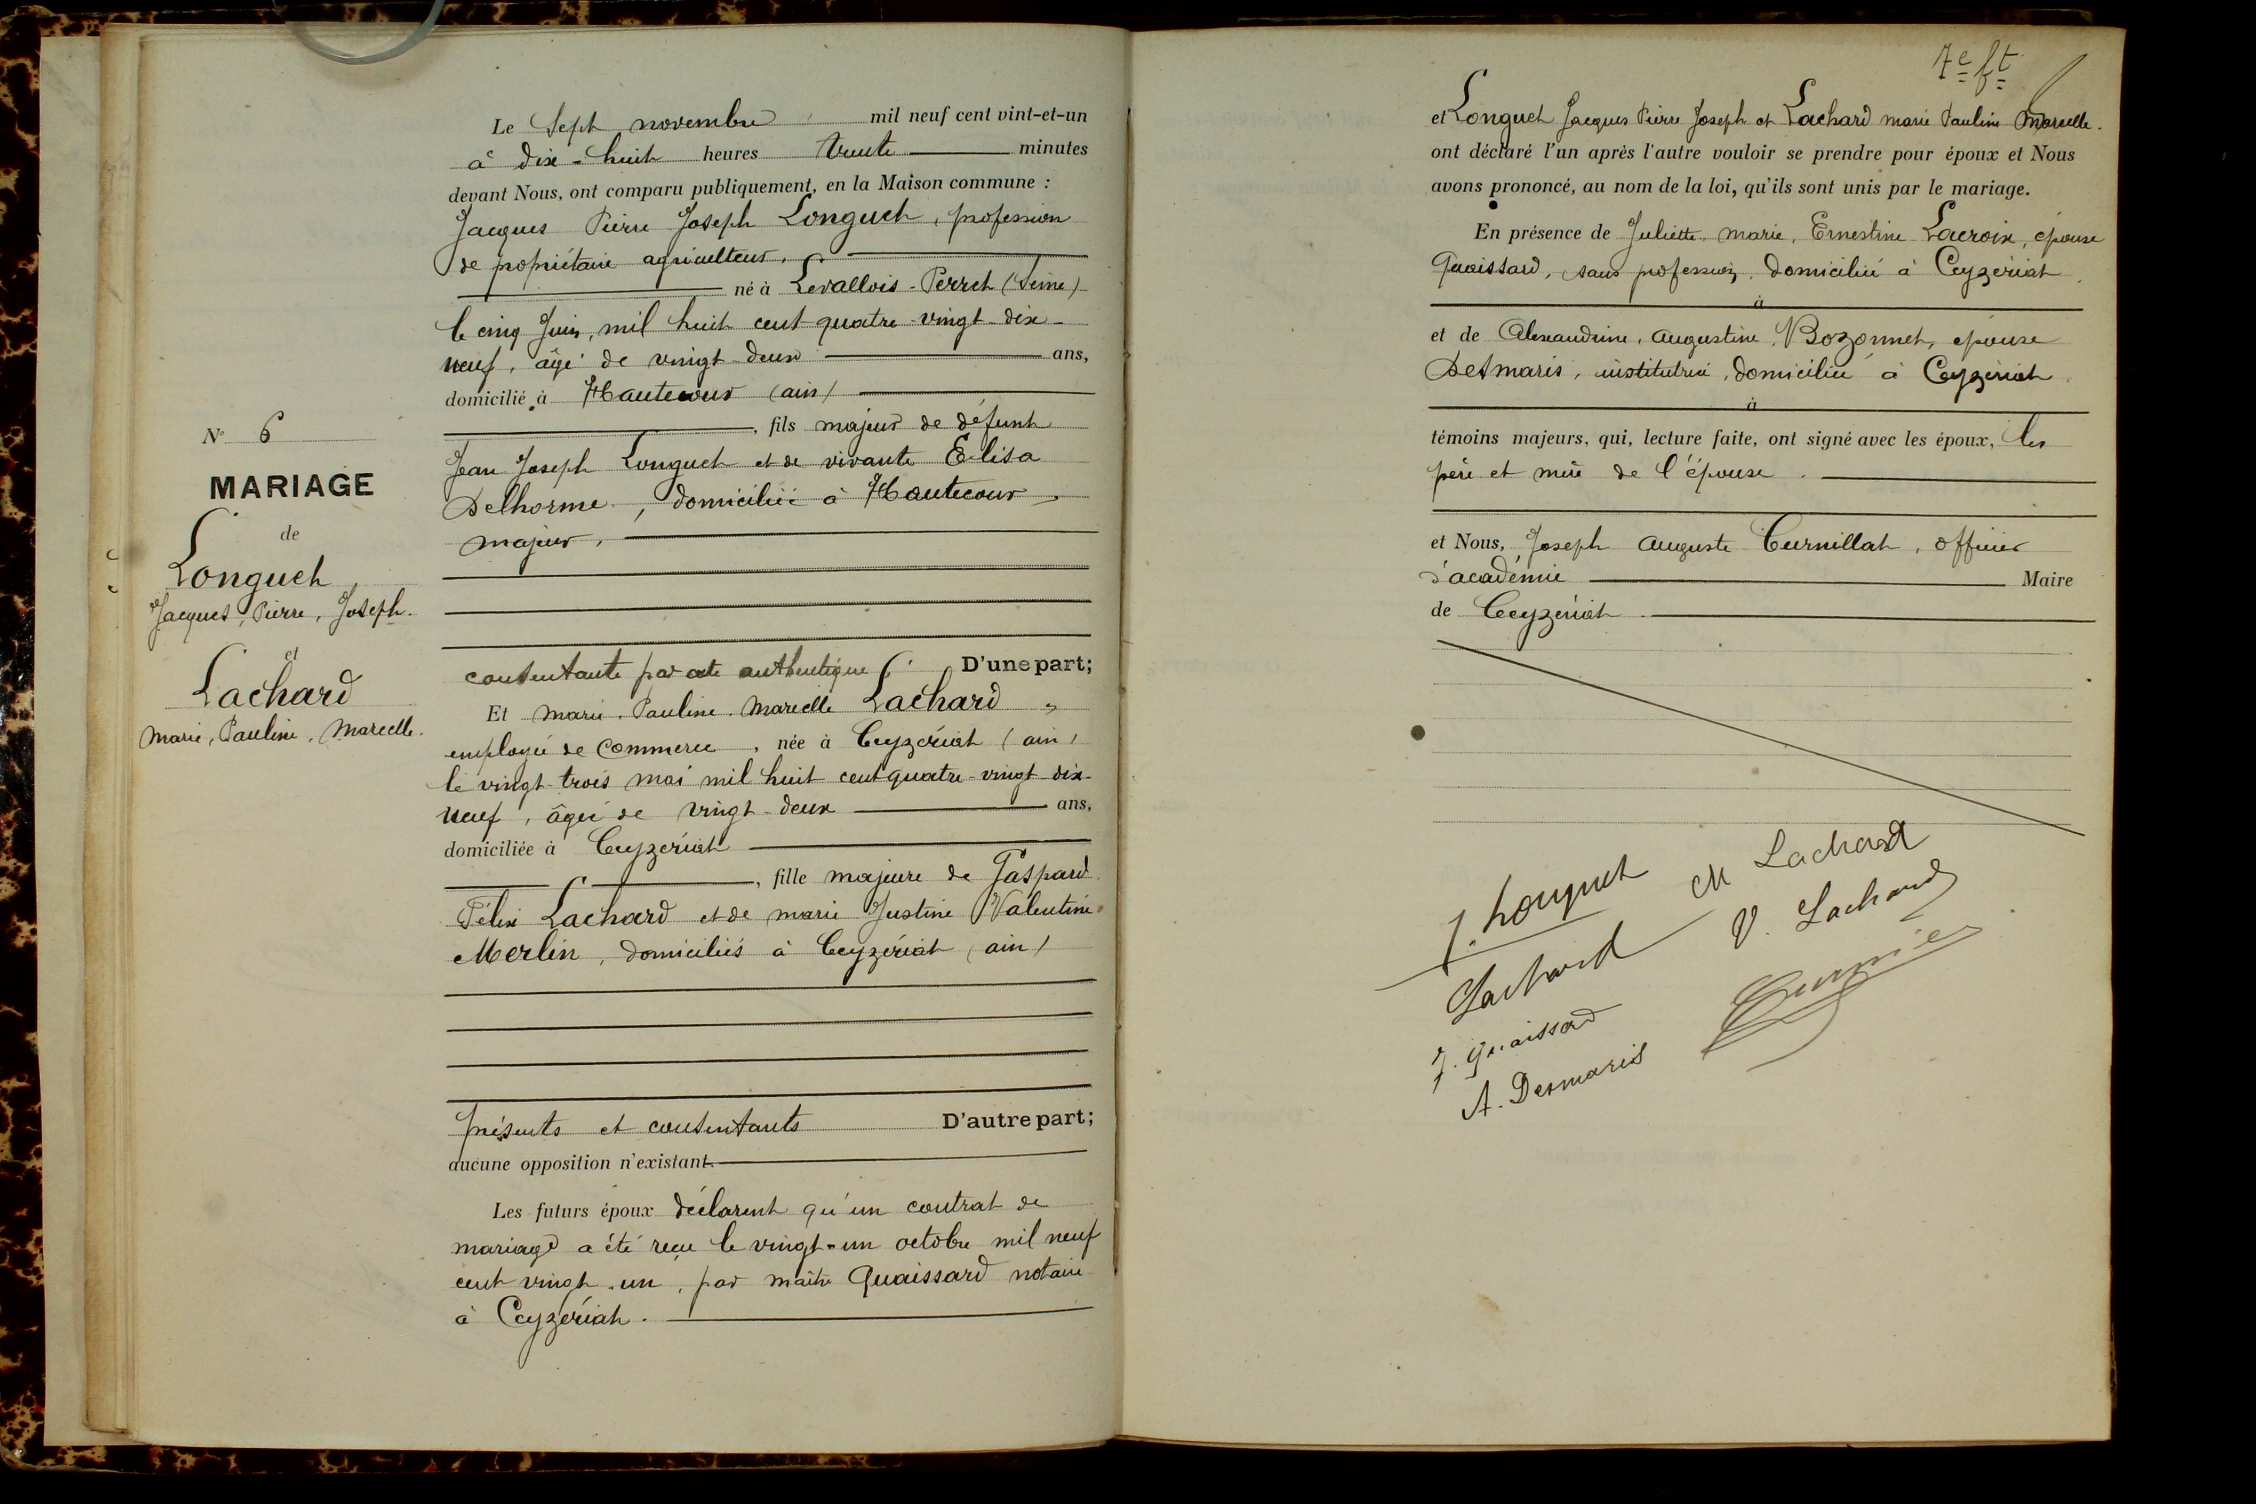 N° 6
MARIAGE
de
Longuet
Jacques, Pierre, Joseph.
et
Lachard
Marie, Pauline, Marcelle.
Le Sept novembre mil neuf cent vint-et-un
à dix-huit heures trente minutes
devant Nous, ont comparu publiquement, en la Maison commune :
Jacques Pierre Joseph Longuet, profession
de propriétaire agriculteur,
né à Levallois-Perret (Seine)
le cinq Juin, mil huit cent quatre-vingt-dix-
neuf, âgé de vingt-deux ans,
domicilié à Hautecour (ain)
, fils majeur de défunt
Jean Joseph Longuet et de vivante Elisa
Delhorme, domiciliée à Hautecour,
majeur,
consentante par acte authentique, D'une part;
Et Marie. Pauline. Marcelle Lachard,
employée de commerce, née à Ceyzériat (ain)
le vingt-trois mai mil huit cent quatre-vingt-dix-
neuf, âgée de vingt-deux ans,
domiciliée à Ceyzériat
, fille majeure de Gaspard
Félix Lachard et de marie Justine Valentine
Merlin, domiciliés à Ceyzériat (ain)
présents et consentants D'autre part;
aucune opposition n'existant.
Les futurs époux déclarent qu'un contrat de
mariage a été reçu le vingt-un octobre mil neuf
cent vingt-un, par maître Quaissard notaire
à Ceyzériat.
7e ft
et Longuet Jacques Pierre Joseph et Lachard marie Pauline Marcelle.
ont déclaré l'un après l'autre vouloir se prendre pour époux et Nous
avons prononcé, au nom de la loi, qu'ils sont unis par le mariage.
En présence de Juliette. marie. Ernestine Lacroix, épouse
Quaissard, sans profession, domiciliée à Ceyzériat
à
et de Alexandrine. Augustine. Bozonnet, épouse
Desmaris, institutrice, domiciliée à Ceyzériat
à
témoins majeurs, qui, lecture faite, ont signé avec les époux, les
père et mère de l'épouse.
et Nous, Joseph Auguste Curnillat, officier
d'académie Maire
de Ceyzériat
J. Longuet
M Lachard
Lachard
V. Lachard
J. Quaissard
A. Desmaris